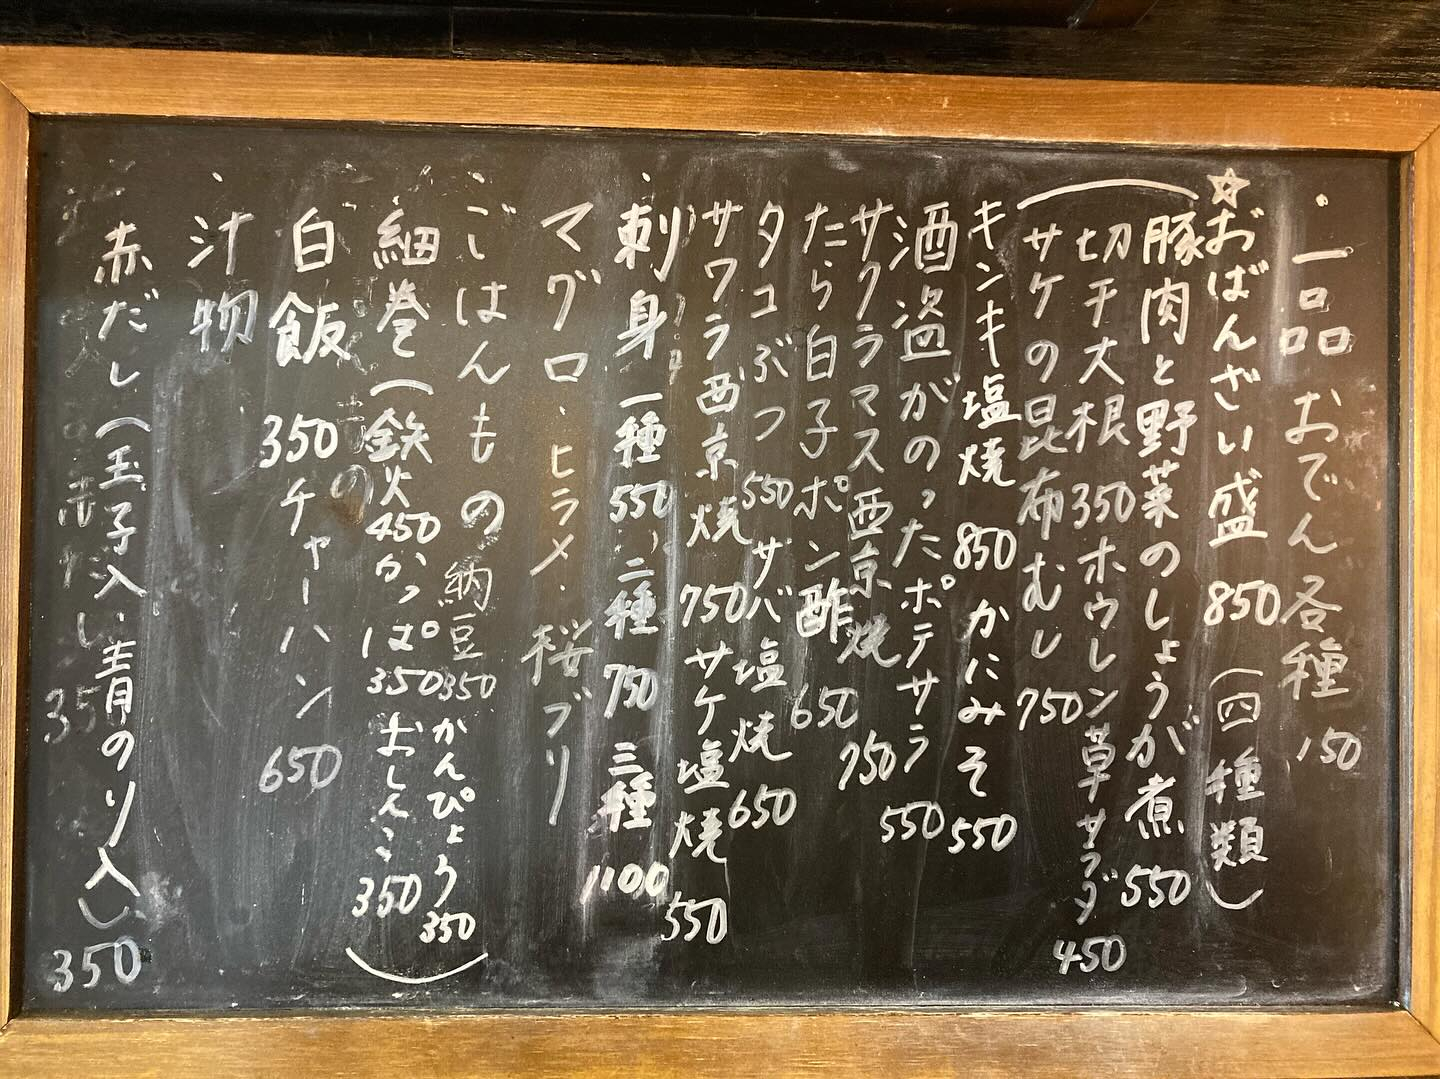 ・一品 おでん各種 150
☆おばんざい盛 850 (四種類)
豚肉と野菜のしょうが煮 550
切干大根 350 ホウレン草サラダ 450
サケの昆布むし 750
キンキ塩焼 850 かにみそ 550
酒盗がのったポテサラ 550
サクラマス西京焼 750
たら白子ポン酢 650
タコぶつ 550 サバ塩焼 650
サワラ西京焼 750 サケ塩焼 550
・刺身 一種 550 二種 750 三種 1100
マグロ・ヒラメ・桜ブリ
・ごはんもの 納豆 350 かんぴょう 350
細巻(鉄火 450 かっぱ 350 おしんこ 350)
白飯 350 チャーハン 650
・汁物
赤だし(玉子入・青のり入) 350